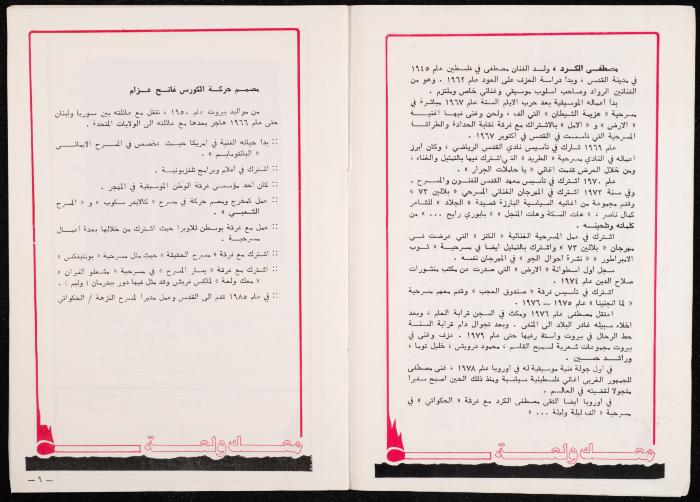 مصطفى الكرد ، ولد الفنان مصطفى في فلسطين عام ١٩٤٥
في مدينة القدس ، وبدأ دراسة العزف على العود عام ١٩٦٢ . وهو من
الفنانين الرواد وصاحب اسلوب موسيقي وغنائي خاص وملتزم .
بدأ اعماله الموسيقية بعد حرب الايام الستة عام ١٩٦٧ مباشرة في
مسرحية « هزيمة الشيطان » التي الف ، ولحن وغنى فيها اغنية
« الارض » و « الامل » بالاشتراك مع فرقة نقابة الحدادة والطراشة
المسرحية التي تأسست في القدس في اكتوبر ١٩٦٧ .
عام ١٩٦٩ شارك في تأسيس نادي القدس الرياضي ، وكان ابرز
اعماله في النادي مسرحية « الطريد » التي اشترك فيها بالتمثيل والغناء ،
ومن خلال العرض قدمت اغاني « يا حاملات الجرار » .
عام ١٩٧٠ اشترك في تأسيس معهد القدس للفنون والمسرح .
وفي سنة ١٩٧٣ اشترك في المهرجان الغنائي المسرحي « بلالين ٧٣ »
وقدم مجموعة من اغانيه السياسية البارزة قصيدة « الجلاد » للشاعر
كمال ناصر ، « هات السكة وهات المنجل » « بابوري رايح ... » من
كلماته وتلحينه .
اشترك في عمل المسرحية الغنائية « الكنز » التي عرضت في
مهرجان « بلالين ٧٣ » واشترك بالتمثيل ايضا في مسرحية « ثوب
الامبراطور » « نشرة احوال الجو » في المهرجان نفسه .
سجل اول اسطوانة « الارض » التي صدرت عن مكتب منشورات
صلاح الدين عام ١٩٧٤ .
اشترك في تأسيس فرقة « صندوق العجب » وقدم معهم مسرحية
« لما انجنينا » عام ١٩٧٥ – ١٩٧٦ .
اعتقل مصطفى عام ١٩٧٦ ومكث في السجن قرابة العام ، وبعد
اخلاء سبيله غادر البلاد الى المنفى . وبعد تجوال دام قرابة السنة
حط الرحال في بيروت واستة رفيها حتى عام ١٩٧٩ . عزف وغنى في
بيروت مجموعات شعرية لسميح القاسم ، محمود درويش ، خليل توما ،
وراشد حسين .
في اول جولة فنية موسيقية له في اوروبا عام ١٩٧٨ ، غنى مصطفى
للجمهور الغربي اغاني فلسطينية سياسية ومنذ ذلك الحين اصبح سفيرا
متجولا لقضيته في العالم .
في اوروبا ايضا التقى مصطفى الكرد مع فرقة « الحكواتي » في
مسرحية « الف ليلة وليلة ... »
معك ولعة
مصمم حركة الكورس فاتح عزام
من مواليد بيروت عام ١٩٥٠ ، تنقل مع عائلته بين سوريا ولبنان
حتى عام ١٩٦٦ هاجر بعدها مع عائلته الى الولايات المتحدة .
:: بدأ حياته الفنية في امريكا حيث تخصص في المسرح الايمائي
« البانتومايم » .
:: اشترك في افلام وبرامج تلفزيونية .
:: كان احد مؤسسي فرقة الوطن الموسيقية في المهجر .
:: عمل كمخرج ومصمم حركة في مسرح « كالايدر سكوب » و « المسرح
الشعبي » .
:: عمل مع فرقة بوسطن للاوبرا حيث اشترك من خلالها بعدة اعمال
مسرحية .
:: اشترك مع فرقة « مسرح الحقيقة » حيث مثل مسرحية « بونتيفكس »
:: اشترك مع فرقة « يسار المسرح » في مسرحية « مشعلو النيران »
« معك ولعة » لماكس فريش وقد مثل فيها دور بيدرمان ( وليم ) .
:: في عام ١٩٨٥ قدم الى القدس وعمل مديرا لمسرح النزهة / الحكواتي
معك ولعة
– ٩ –